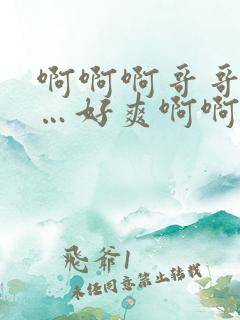 啊啊啊哥哥
…好爽啊啊
飛爺1
未经同意禁止转载